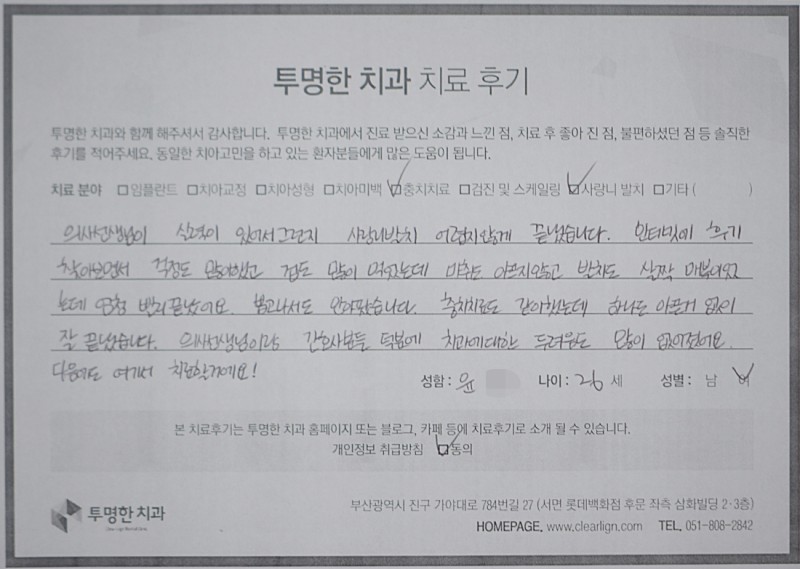 투명한 치과 치료 후기
투명한 치과와 함께 해주셔서 감사합니다. 투명한 치과에서 진료 받으신 소감과 느낀 점, 치료 후 좋아 진 점, 불편하셨던 점 등 솔직한
후기를 적어주세요. 동일한 치아고민을 하고 있는 환자분들에게 많은 도움이 됩니다.
치료 분야 □임플란트 □치아교정 □치아성형 □치아미백 ☑충치치료 □검진 및 스케일링 ☑사랑니 발치 □기타 ( )
의사선생님이 실력이 있어서그런지 사랑니발치 어렵지않게 끝났습니다. 인터넷에 후기
찾아보면서 걱정도 많이했고 겁도 많이 먹었는데 마취도 아프지않고 발치도 살짝 매복이었
는데 엄청 빨리끝났어요. 붓고나서도 안아팠습니다. 충치치료도 같이했는데 하나도 아픈거 없이
잘 끝났습니다. 의사선생님이랑 간호사분들 덕분에 치과에대한 두려움도 많이 없어졌어요.
다음에도 여기서 치료할거에요!
성함 : 윤 나이 : 26 세 성별 : 남 여
본 치료후기는 투명한 치과 홈페이지 또는 블로그, 카페 등에 치료후기로 소개 될 수 있습니다.
개인정보 취급방침 ☑동의
투명한 치과
부산광역시 진구 가야대로 784번길 27 (서면 롯데백화점 후문 좌측 삼화빌딩 2·3층)
HOMEPAGE. www.clearlign.com TEL. 051-808-2842